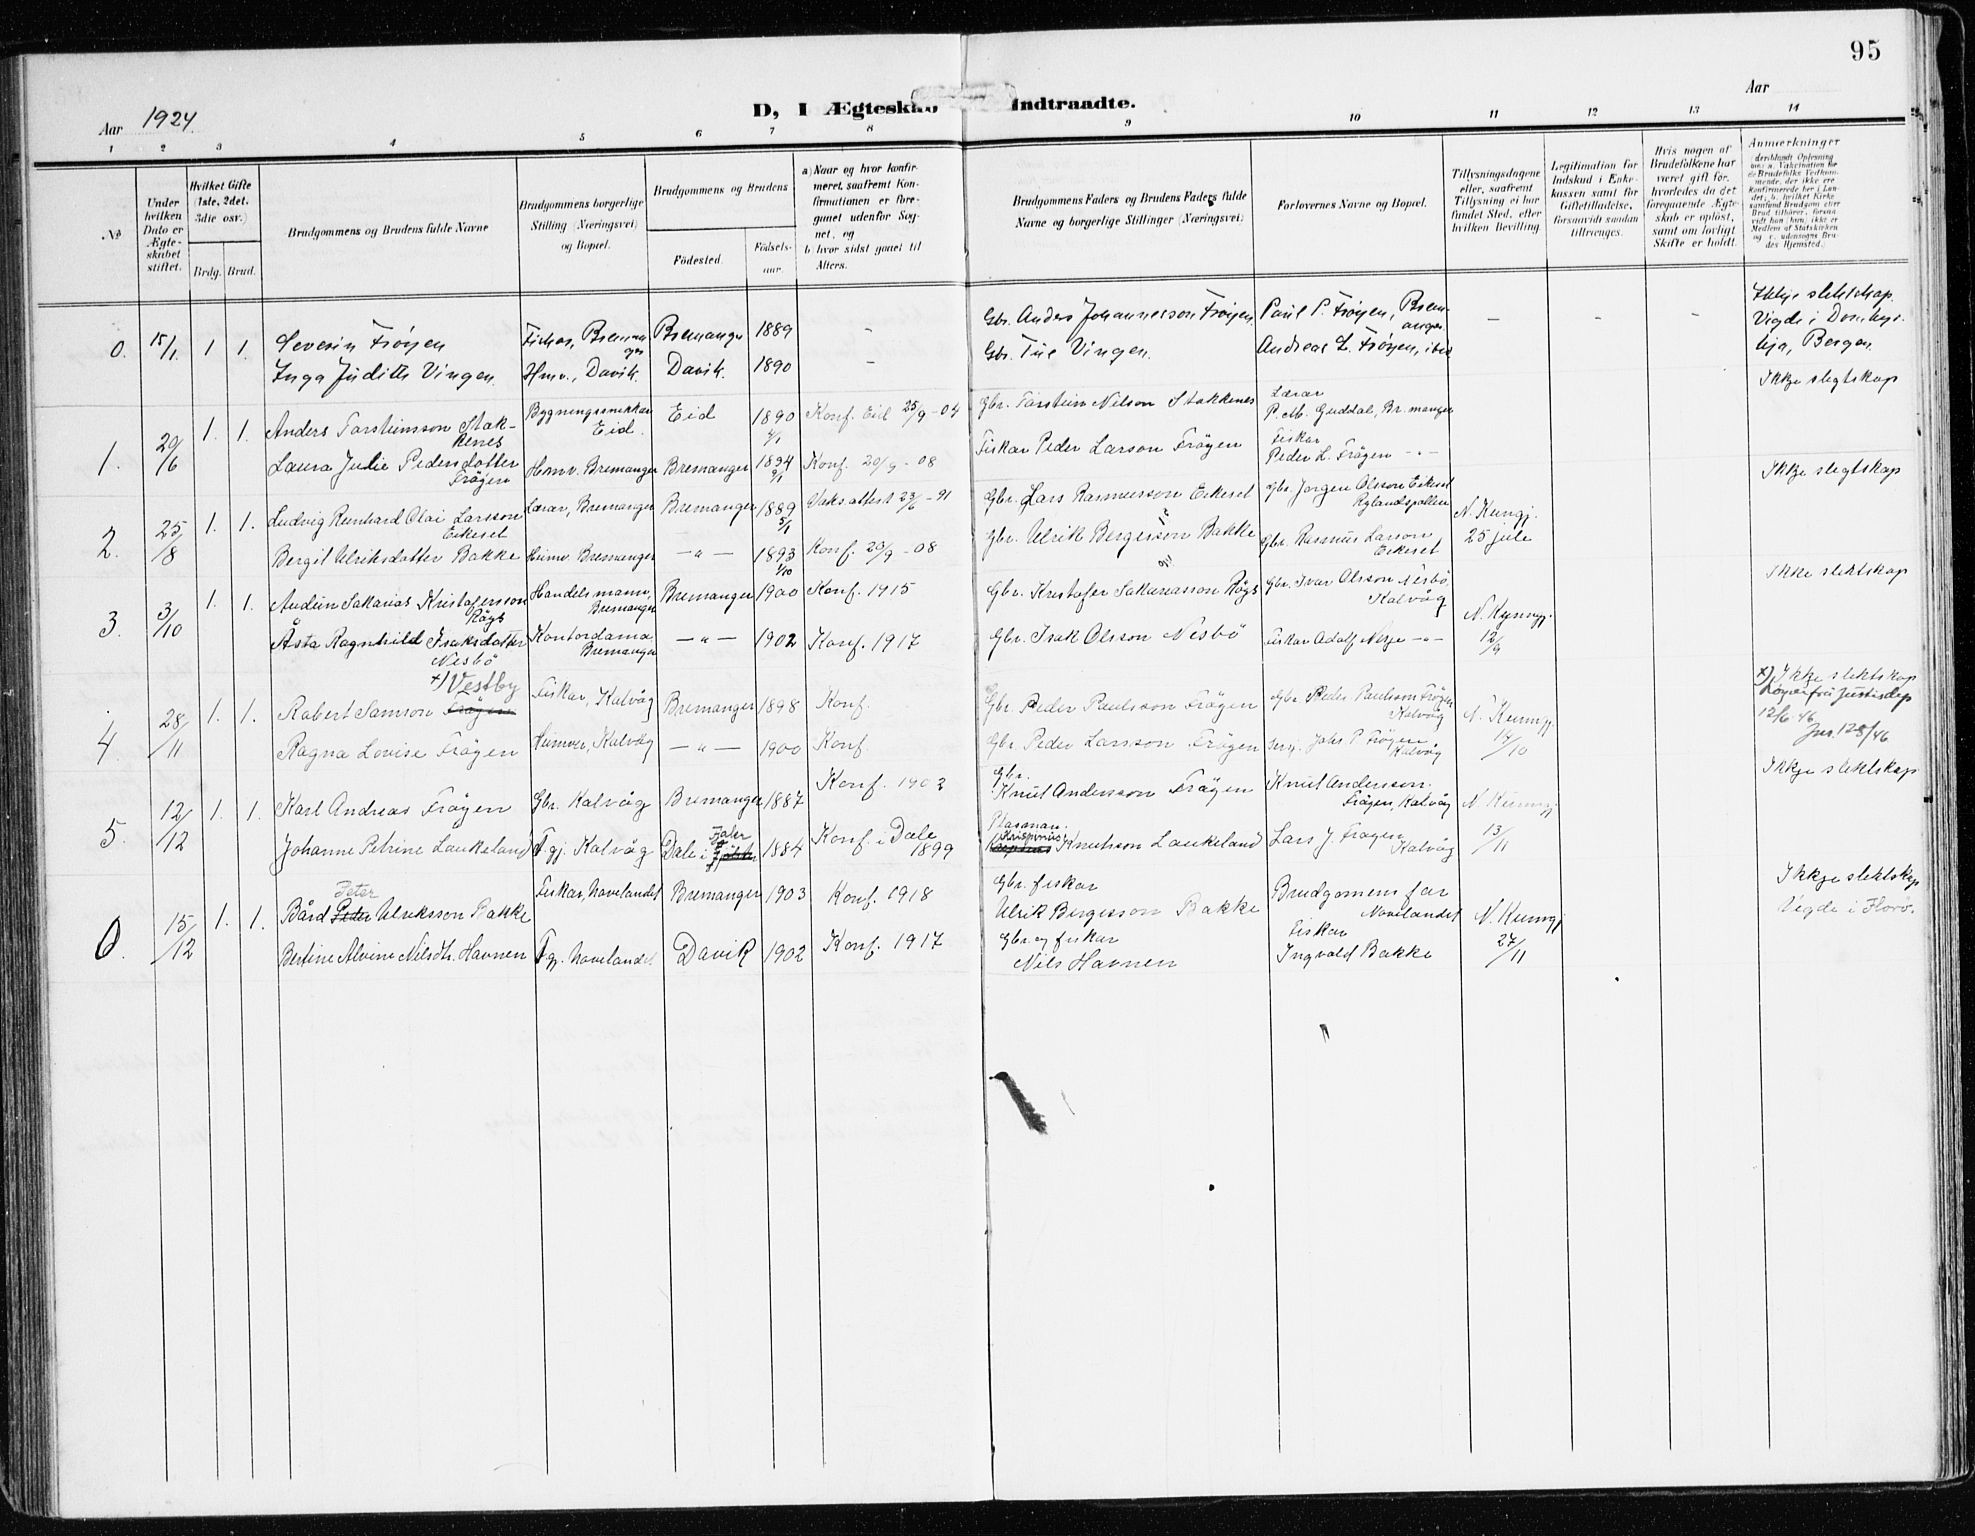 95
Aar 1924.
D, I Ægteskab Indtraadte.
Aar
1 2 3 4 5 6 7 8 9 10 11 12 13 14
No
Under hvilken Dato er Ægteskabet stiftet.
Hvilket Gifte (1ste, 2det, 3die osv.)
Brdg. Brud.
Brudgommens og Brudens fulde Navne
Brudgommens borgerlige Stilling (Næringsvei) og Bopæl.
Brudgommens og Brudens
Fødested.
Fødselsaar.
a) Naar og hvor konfirmeret, saafremt Konfirmationen er foregaaet udenfor Sognet, og
b) hvor sidst gaaet til Alters.
Brudgommens Faders og Brudens Faders fulde Navne og borgerlige Stillinger (Næringsvei)
Forlovernes Navne og Bopæl.
Tillysningsdagene eller, saafremt Tillysning ei har fundet Sted, efter hvilken Bevilling.
Legitimation for Indskud i Enkekassen samt for Giftetilladelse, forsaavidt saadan tiltrænges.
Hvis nogen af Brudefolkene har været gift før, hvorledes da det foregaaende Ægteskab er opløst, samt om lovligt Skifte er holdt.
Anmærkninger
0. 15/1 1 1. Severin Frøyen Fisker, Bremanger Bremanger 1889 – Gbr. Anders Johannesson Frøyen. Paul P. Frøyen, Bremanger. – – – Ikkje slektskap. Vigde i Domkyrkja, Bergen.
Inga Judith Vingen. Hmv., Davik. Davik. 1890 – Gbr. Tue Vingen. Andreas L. Frøyen, ibid
1. 29/6 1. 1. Anders Torsteinsson Stakkenes Bygningssnikkar Eid. Eid 1890 Konf. Eid 25/9 - 04 Gbr. Torstein Nilson Stokkenes Lærar P. M. Guddal, Bremanger Ikkje slegtskap
Laura Julie Pedersdotter Frøyen Hmv. Bremanger Bremanger 1894 Konf. 20/9 - 08 Fiskar Peder Larson Frøyen Fiskar Peder L. Frøyen -"-
2. 25/8 1. 1. Ludvig Reinhard Olai Larsson Eikeset Lærar, Bremanger Bremanger 1889 5/1 Vaks attest 23/6 - 91 Gbr. Lars Rasmusson Eikeset Gbr. Jørgen Olsson Eikeset Rylandspollen N. Kungj. 25 jule Ikkje slegtskap
Bergit Ulriksdotter Bakke Heimv. Bremanger -"- 1893 1/10 Konf. 20/9 - 08 Gbr. Ulrik Bergesson Bakke Gbr. Rasmus Larson Eikeset
3. 3/10 1. 1. Audun Sakarias Kristofersson Rögs Handelsmann, Bremanger Bremanger 1900 Konf. 1915 Gbr. Kristofer Sakariasson Rögs Gbr. Ivar Olsson Nesbö, Kalvåg N. Kyunngj. 12/9 Ikkje slektskap
Åsta Ragnhild Isaksdotter Nesbö Kontordama Bremanger -"- 1902 Konf. 1917 Gbr. Isak Olsson Nesbö Fiskar Adolf Nesje -"-
4. 28/11 1. 1. Robert Samson Frøyen x) Vestby Fiskar, Kalvåg Bremanger 1898 Konf. Gbr. Peder Paulsson Frøyen Gbr. Peder Paulsson Frøyen Kalvåg N. Kunngj. 14/10 x) Ikkje slektskap Løyve frå Justisdep 12/6.46 Jnr. 128/46
Ragna Lovise Frøyen Heimver, Kalvåg -"- 1900 Konf. Gbr. Peder Larsson Frøyen Johs P Frøyen Kalvåg
5. 12/12 1. 1. Karl Andreas Frøyen Gbr. Kalvåg Bremanger 1887 Konf. 1902 Gbr. Knut Andersson Frøyen Knut Andersson Frøyen, Kalvåg N. Kunngj. 13/11 Ikkje slektskap
Johanne Petrine Laukeland Tgj. Kalvåg Dale i Fjaler 1884 Konf. i Dale 1899 Plassman. Krispinus Knutsson Laukeland Lars J. Frøyen Kalvåg
6. 15/12 1. 1. Bård Peter Ulriksson Bakke Fiskar, Novelandet Bremanger 1903 Konf. 1918 Gbr. fiskar Ulrik Bergesson Bakke Brudgomens far Novelandet N. Kunngj 27/11 Ikkje slektskap Vegde i Florö.
Bertine Alvine Nilsdtr. Havnen Tgj. Novelandet. Davik 1902 Konf. 1917 Gbr. og fiskar Nils Havnen Fiskar Ingvald Bakke